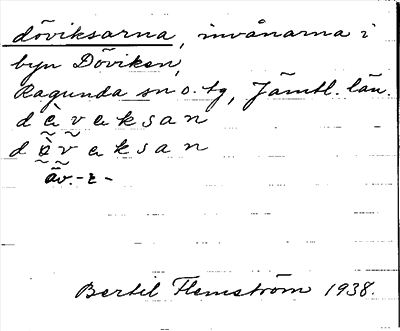 döviksarna, invånarna i
byn Döviken,
Ragunda sn o. tg, Jämtl. län.
d è v e k s a n
d ò v e k s a n
äv. -ɛ-
Bertil Flemström 1938.